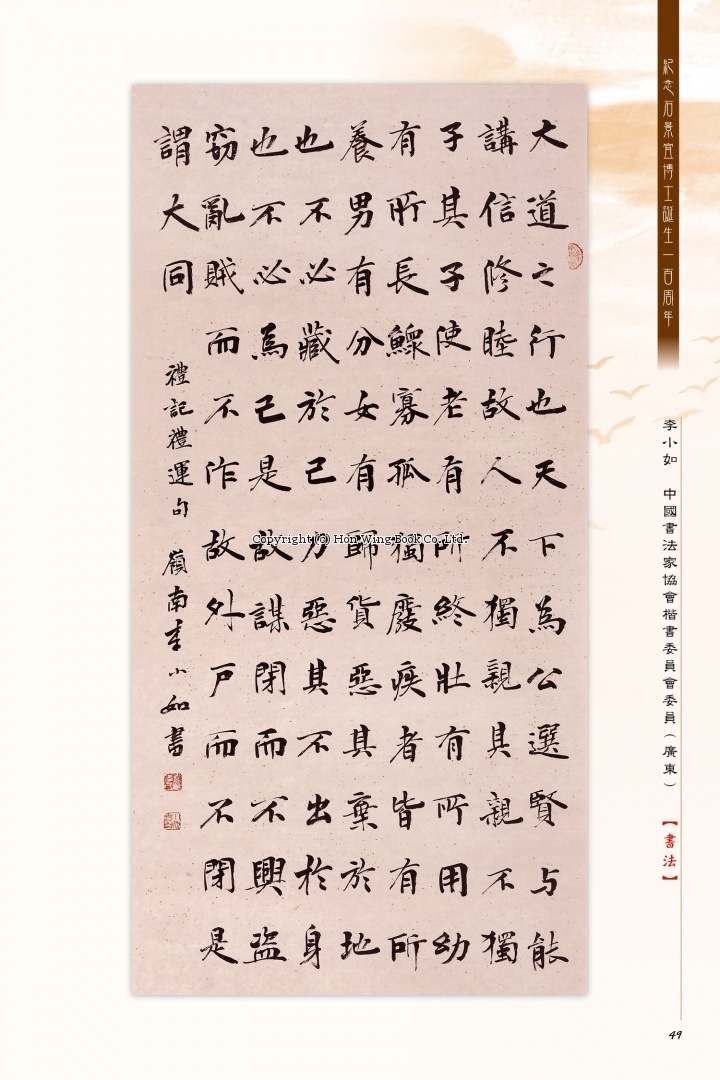 紀念石景宜博士誕生一百周年
李小如 中國書法家協會楷書委員會委員（廣東）
【書法】
大道之行也天下為公選賢与能
講信修睦故人不獨親其親不獨
子其子使老有所終壯有所用幼
有所長鰥寡孤獨廢疾者皆有所
養男有分女有歸貨惡其棄於地
也不必藏於己力惡其不出於身
也不必為己是故謀閉而不興盜
竊亂賊而不作故外戶而不閉是
謂大同
禮記禮運句 嶺南李小如書
Copyright (c) Hon Wing Book Co.,Ltd.
49